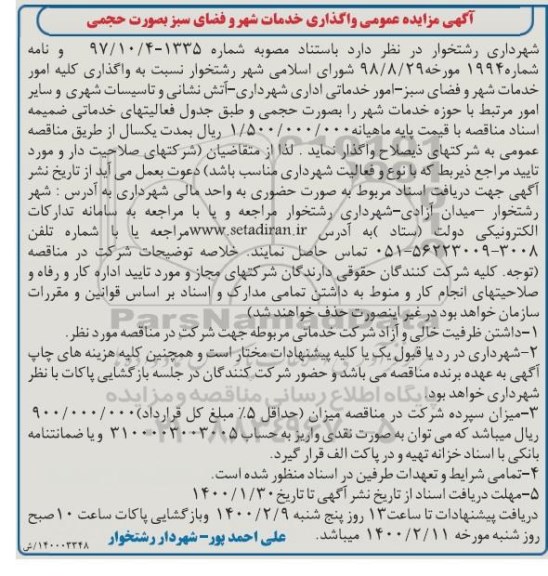 آگهی مزایده عمومی واگذاری خدمات شهر و فضای سبز بصورت حجمی
شهرداری رشتخوار در نظر دارد باستناد مصوبه شماره ۱۳۳۵-۹۷/۱۰/۴ و نامه
شماره۱۹۹۴ مورخه۹۸/۸/۲۹ شورای اسلامی شهر رشتخوار نسبت به واگذاری کلیه امور
خدمات شهر و فضای سبز-امور خدماتی اداری شهرداری-آتش نشانی و تاسیسات شهری و سایر
امور مرتبط با حوزه خدمات شهر را بصورت حجمی و طبق جدول فعالیتهای خدماتی ضمیمه
اسناد مناقصه با قیمت پایه ماهیانه۱/۵۰۰/۰۰۰/۰۰۰ ریال بمدت یکسال از طریق مناقصه
عمومی به شرکتهای ذیصلاح واگذار نماید . لذا از متقاضیان (شرکتهای صلاحیت دار و مورد
تایید مراجع ذیربط که با نوع و فعالیت شهرداری مناسب باشد) دعوت بعمل می آید از تاریخ نشر
آگهی جهت دریافت اسناد مربوط به صورت حضوری به واحد مالی شهرداری به آدرس : شهر
رشتخوار –میدان آزادی–شهرداری رشتخوار مراجعه و یا با مراجعه به سامانه تدارکات
الکترونیکی دولت (ستاد )به آدرس www.setadiran.irمراجعه یا با شماره تلفن
۳۰۰۸-۰۵۱-۵۶۲۲۳۰۰۹ تماس حاصل نمایند. خلاصه توضیحات شرکت در مناقصه
(توجه. کلیه شرکت کنندگان حقوقی دارندگان شرکتهای مجاز و مورد تایید اداره کار و رفاه و
صلاحیتهای انجام کار و منوط به داشتن تمامی مدارک و اسناد بر اساس قوانین و مقررات
سازمان خواهد بود در غیر اینصورت حذف خواهند شد)
۱-داشتن ظرفیت خالی و آزاد شرکت خدماتی مربوطه جهت شرکت در مناقصه مورد نظر.
۲-شهرداری در رد یا قبول یک یا کلیه پیشنهادات مختار است و همچنین کلیه هزینه های چاپ
آگهی به عهده برنده مناقصه می باشد و حضور شرکت کنندگان در جلسه بازگشایی پاکات با نظر
شهرداری خواهد بود.
۳-میزان سپرده شرکت در مناقصه میزان (حداقل ۵٪ مبلغ کل قرارداد)۹۰۰/۰۰۰/۰۰۰
ریال میباشد که می توان به صورت نقدی واریز به حساب ۳۱۰۰۰۰۳۰۰۳۰۰۵ و یا ضمانتنامه
بانکی یا اسناد خزانه تهیه و در پاکت الف قرار گیرد.
۴-تمامی شرایط و تعهدات طرفین در اسناد منظور شده است.
۵-مهلت دریافت اسناد از تاریخ نشر آگهی تا تاریخ۱۴۰۰/۱/۳۰
دریافت پیشنهادات تا ساعت۱۳ روز پنج شنبه ۱۴۰۰/۲/۹ وبازگشایی پاکات ساعت ۱۰صبح
روز شنبه مورخه ۱۴۰۰/۲/۱۱ میباشد.
علی احمد پور– شهردار رشتخوار
۱۴۰۰۰۳۳۴۸/ش
ParsNamadData
پایگاه اطلاع رسانی مناقصه و مزایده